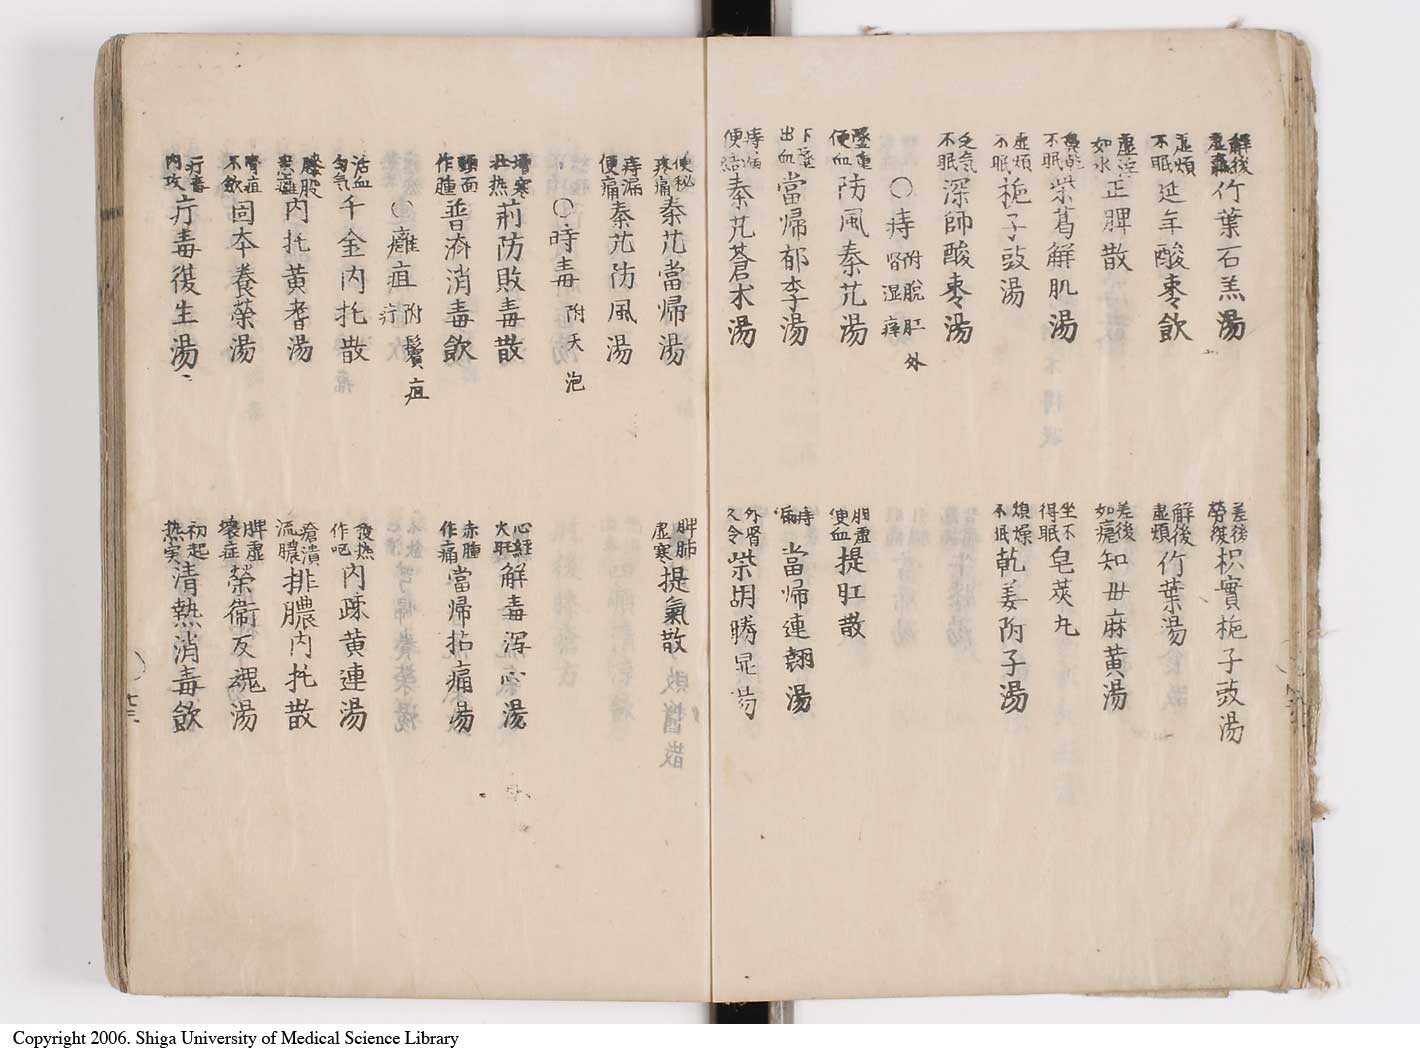 解後 竹葉石羔湯
虛煩 不眠 延年酸枣飲
虛浮 如水 正脾散
鼻乾 不眠 柴葛解肌湯
虛煩 不眠 梔子豉湯
乏氣 不眠 深師酸枣湯
〇痔 附脫肛 外腎湿痒
便血 防風秦艽湯
下血 出血 當帰郁李湯
痔漏 便結 秦艽蒼朮湯
差後 勞復 枳實梔子豉湯
解後 虛煩 竹葉湯
差後 如瘧 知毋麻黄湯
坐不 得眠 皂莢丸
煩燥 不眠 乾姜附子湯
胆虛 便血 提肛散
痔漏 當帰連翹湯
外腎 柴胡勝湿湯
便秘 疼痛 秦艽當帰湯
痔漏 便痛 秦艽防風湯
〇時毒 附天泡
增寒 壮热 荊防敗毒散
頭面 作腫 普済消毒飲
〇癰疽 附鬢疽 疔
活血 匀氣 千金内托散
内托黄耆湯
腎疽 不飲 固本養榮湯
疔毒 内攻 疔毒復生湯
脾肺 虛寒 提氣散
心経 火旺 解毒瀉心湯
赤腫 作痛 當帰拈痛湯
發热 作呕 内疎黄連湯
瘡潰 流膿 排膿内托散
脾虛 壊症 榮衞反魂湯
初起 热实 清熱消毒飲
Copyright 2006. Shiga University of Medical Science Library